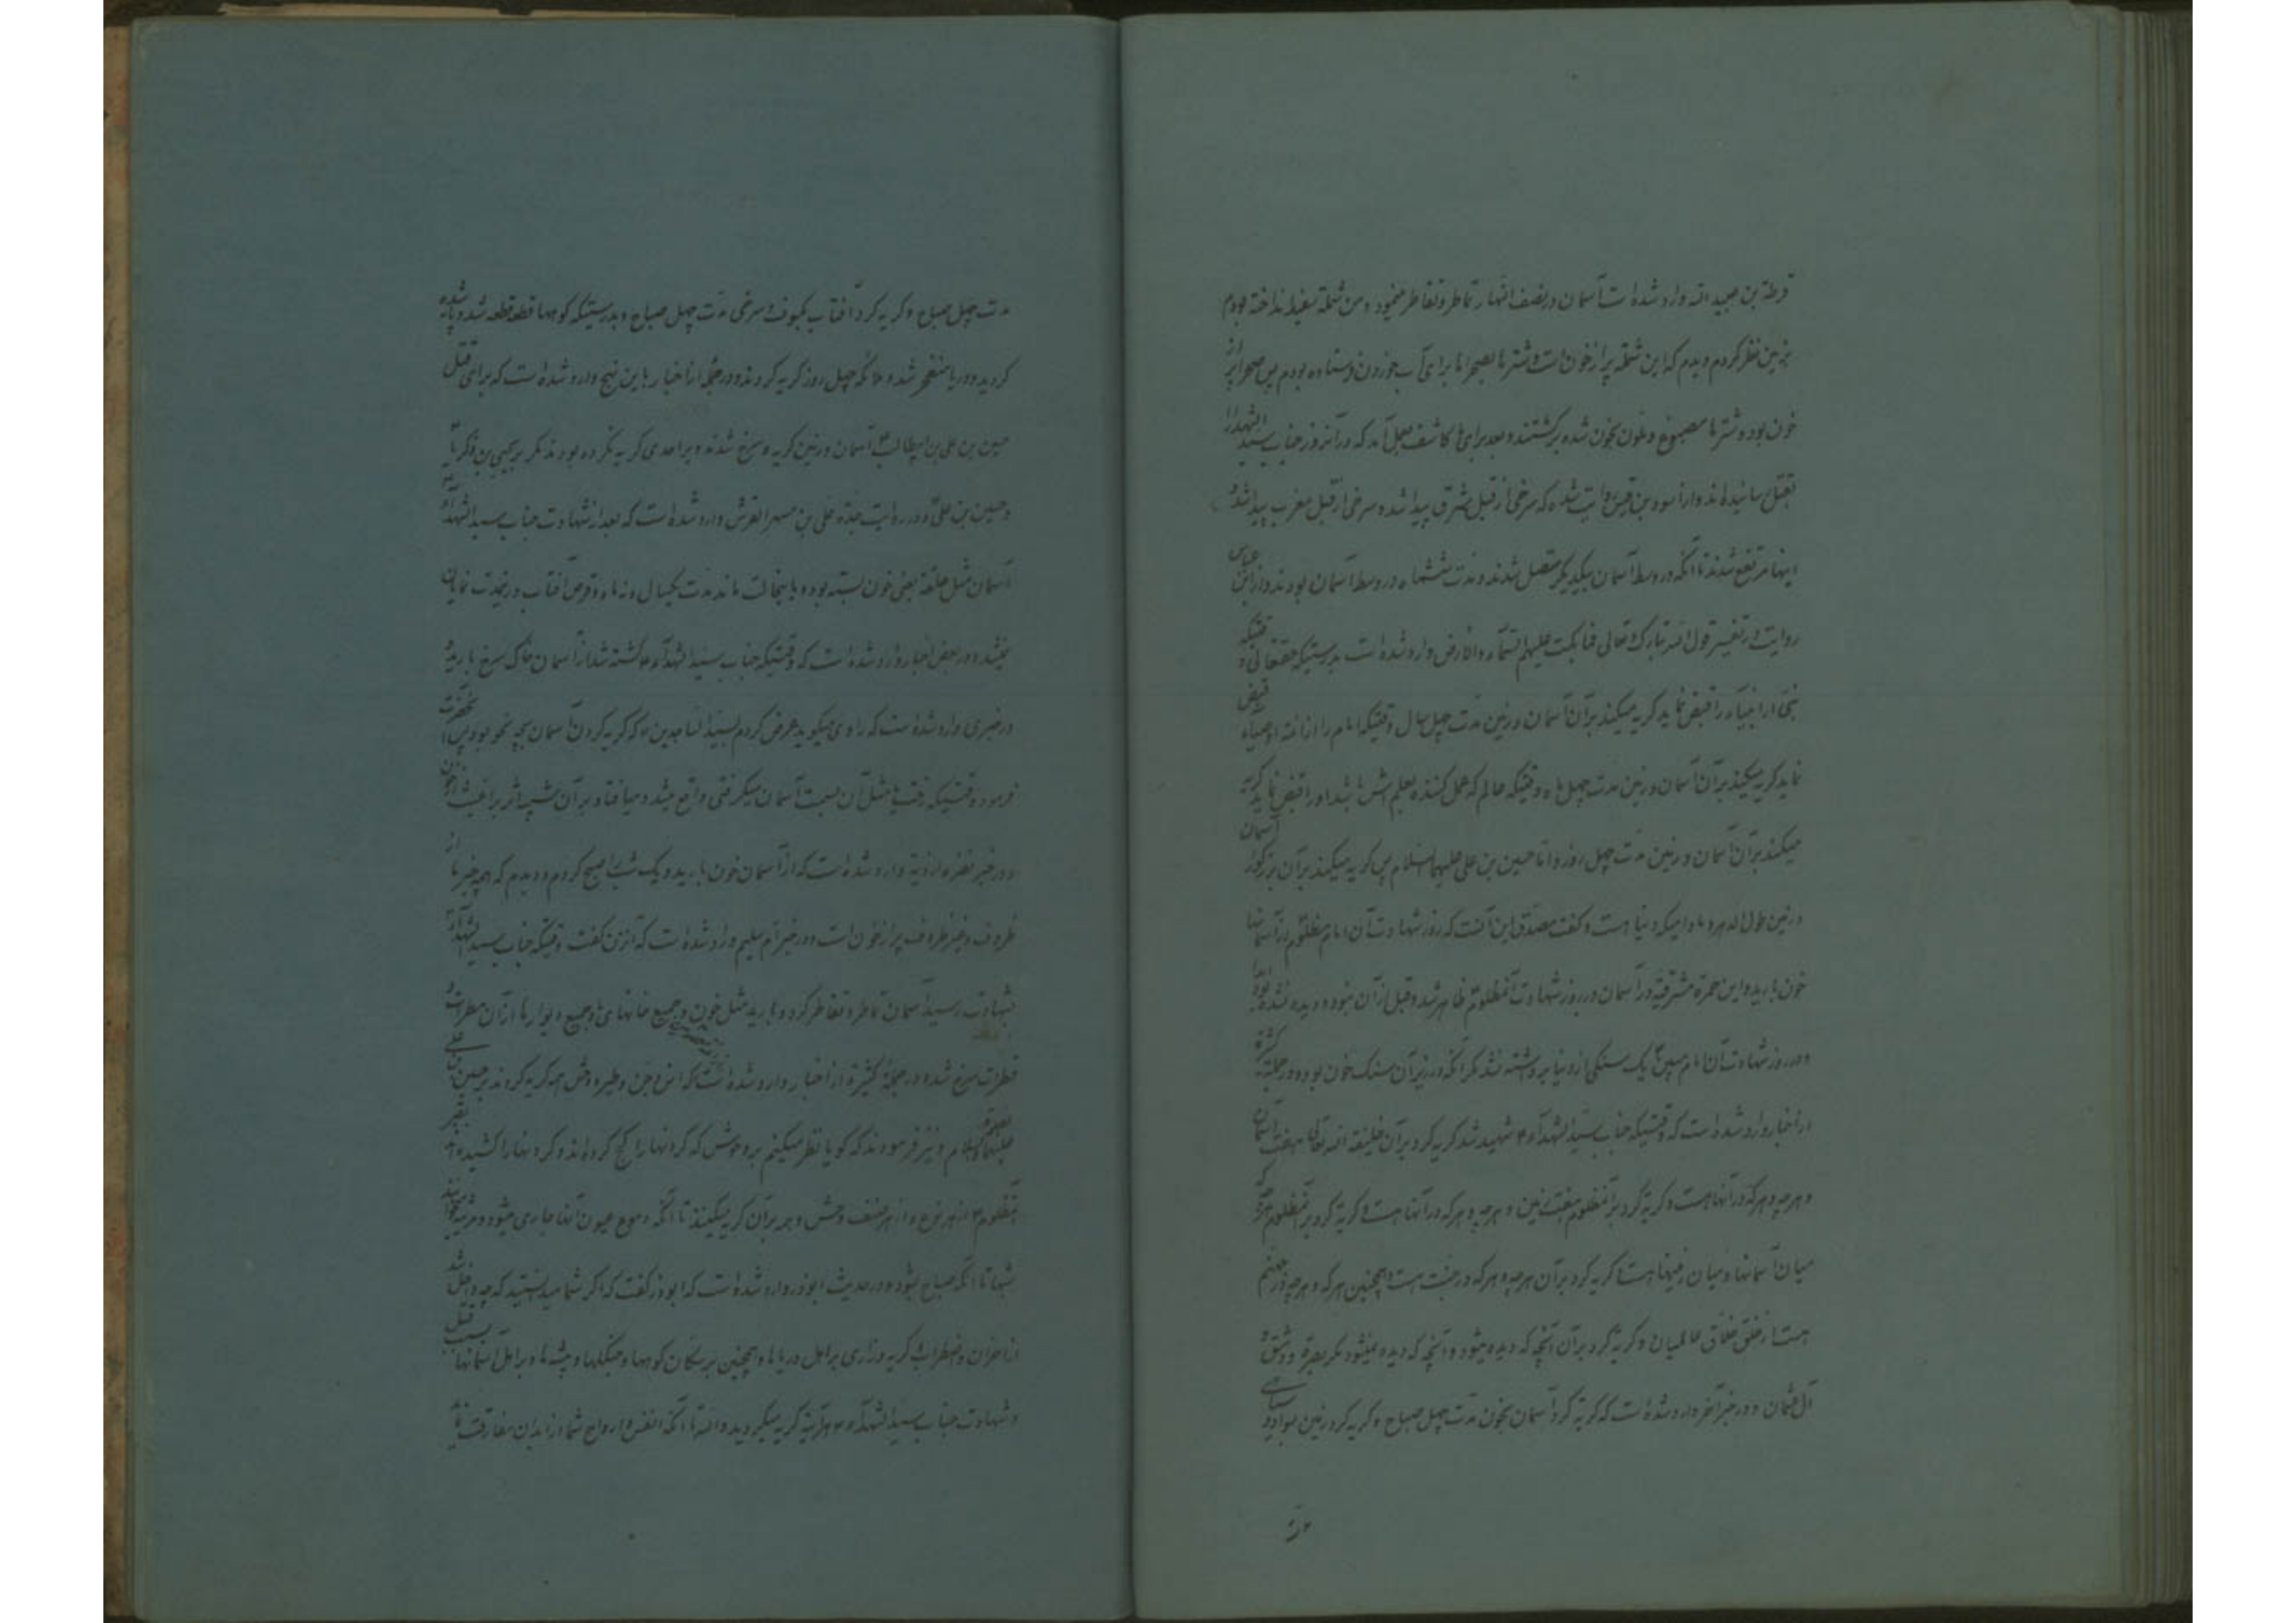 قرطة بن عبید الله وارد شده است آسمان در نصف النهار تماطر و تقاطر مینمود و من شمله سفید انداخته بودم
بزمین نظر کردم دیدم که این شمله پر از خون است و شترها بصحرا ها برای آب خوردن فرستاده بودم پس صحرا پر از
خون بود و شترها مصبوغ و ملون بخون شده برگشتند و بعد برای ما کاشف بعمل آمد که در آنروز جناب سید الشهدا را
بقتل رسانیده اند و از اسود بن قیس روایت شده که سرخی از قبل مشرق پیدا شده و سرخی از قبل مغرب پیدا شد و
اینها مرتفع شدند تا آنکه در وسط آسمان بیکدیگر متصل شدند و مدت ششماه در وسط آسمان بودند و از ابن عباس
روایت در تفسیر قول الله تبارک و تعالی فما بکت علیهم السماء والارض وارد شده است بدرستیکه حقتعالی وقتیکه
نبی از انبیاء را قبض نماید گریه میکند بر آن آسمان و زمین مدت چهل سال و وقتیکه امام را از ائمه اوصیاء قبض
نماید گریه میکند بر آن آسمان و زمین مدت چهل ماه و وقتیکه عالم که عمل کننده بعلمش باشد او را قبض نماید گریه
میکند بر آن آسمان و زمین مدت چهل روز و اما حسین بن علی علیهما السلام پس گریه میکند بر آن بزرگوار آسمان
و زمین طول الدهر و مادامیکه دنیا هست و گفت مصدق این آنست که روز شهادت آن امام مظلوم از آسمانها
خون بارید و این حمرة مشرقیة در آسمان در روز شهادت آنمظلوم ظاهر شد و قبل از آن نبود و دیده نشده بود
و در روز شهادت آن امام مبین یک سنگی از دنیا برداشته نشد مگر آنکه در زیر آن سنگ خون بود و در جمله کثیره
از اخبار وارد شده است که وقتیکه جناب سید الشهداء شهید شد گریه کرد بر آن خلیفة الله تعالی هفت آسمان
و هر چه و هر که در آنهاست و گریه کرد بر آنمظلوم هفت زمین و هر چه و هر که در آنها هست و گریه کرد بر آنمظلوم هر که
میان آسمانها و میان زمینها هست گریه کرد بر آن هر چه و هر که در جنت هست و همچنین هر که و هر چه در جهنم
هست از خلق خلاق عالمیان و گریه کرد بر آن آنچه که دیده میشود و آنچه که دیده نمیشود مگر بصرة و دمشق و
آل عثمان و در خبر آخر وارد شده است که گریه کرد آسمان بخون مدت چهل صباح و گریه کرد زمین بسواد سیاهی
مدت
مدت چهل صباح و گریه کرد آفتاب بکسوف و سرخی مدت چهل صباح و بدرستیکه کوهها قطعه قطعه شد و پاره شده
گردید و دریا منفجر شد و ملائکه چهل روز گریه کردند و در جمله از اخبار باین نهج وارد شده است که برای قتل
حسین بن علی بن ابیطالب آسمان و زمین گریه و سرخ شدند و بر احدی گریه نکرده بودند مگر بر یحیی بن زکریا
و حسین بن علی و در روایت جده علی بن مسهر القرش وارد شده است که بعد از شهادت جناب سید الشهداء
آسمان مثل علقه یعنی خون بسته بود و باینحالت ماند مدت یکسال و نه ماه و قرص آفتاب درنیمدت نمایان
نمیشد و در بعض اخبار وارد شده است که وقتیکه جناب سید الشهداء کشته شد از آسمان خاک سرخ بارید و
در خبری وارد شده است که راوی میگوید عرض کردم بسید الساجدین که گریه کردن آسمان بچه نحو بود پس آنحضرت
فرمود وقتیکه رخت یا مثل آن بسمت آسمان میگرفتی واقع میشد و میافتاد بر آن شبیه اثر براغیث از خون
و در خبر نضره ازدیة وارد شده است که از آسمان خون بارید و یک شب را صبح کردم و دیدم که همه چیز ما از
ظروف و غیر ظروف پر از خون است و در خبر ام سلیم وارد شده است که آنزن گفت وقتیکه جناب سید الشهداء
بشهادت رسید آسمان تماطر و تقاطر کرد و بارید مثل خون و جمیع خانهای و جمیع دیوارها از آن مطرات و
قطرات سرخ شده و در جمله کثیرة از اخبار وارد شده است که انس و جن و طیر و وحش همه گریه کردند بر حسین بن علی
علیهما السلام و نیز فرمودند که گویا نظر میکنم بر وحوش که گردنها را کج کرده اند و گردنها را کشیده اند بقبر
آنمظلوم از هر نوع و از هر صنف وحش و همه بر آن گریه میکنند تا آنکه دموع عیون آنها جاری میشود و مرثیه خوانند
شبها تا آنکه صباح بشود و در حدیث ابوذر وارد شده است که ابوذر گفت که اگر شما میدانستید که چه داخل شد
از احزان و اضطراب گریه و زاری بر اهل دریاها و همچنین بر سکان کوهها و جنگلها و بیشه ها و بر اهل آسمانها بسبب قتل
و شهادت جناب سید الشهداء هر آینه گریه میکردید والله تا آنکه انفس و ارواح شما از ابدان مفارقت نماید